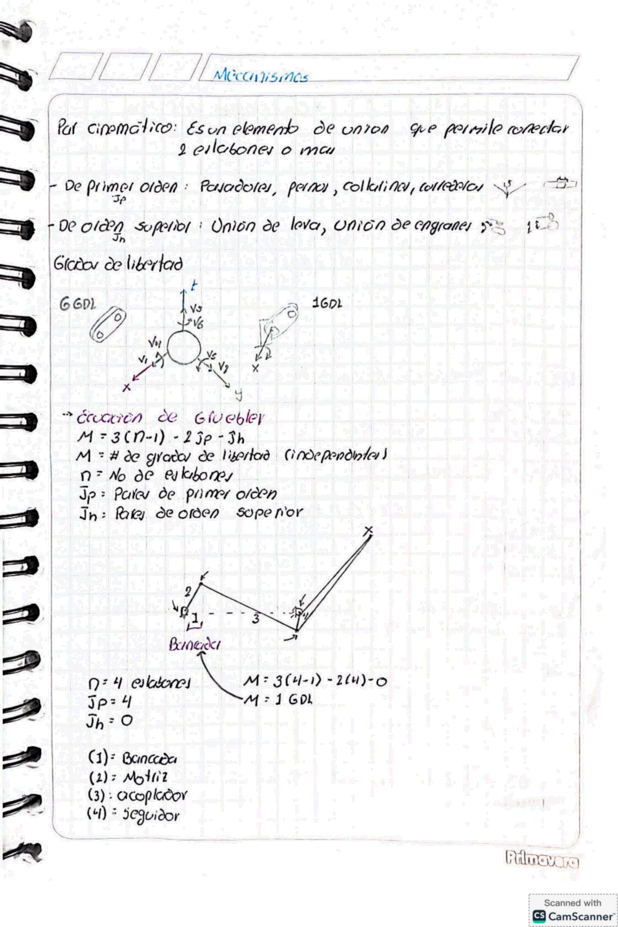 Mecanismos
Par cinemático: Es un elemento de union que permite conectar
2 eslabones o mas
- De primer orden: Pasadores, pernos, collarines, correderas
Jp
- De orden superior: Unión de leva, unión de engranes
Jh
Grados de libertad
6 GDL
1GDL
V3
V6
V4
V1
V5
V2
x
y
x
→ Ecuación de Gruebler
M = 3(n-1) - 2Jp - Jh
M = # de grados de libertad (independientes)
n = No de eslabones
Jp = Pares de primer orden
Jh = Pares de orden superior
x
2
1
3
4
Bancada
n = 4 eslabones
M = 3(4-1) - 2(4) - 0
Jp = 4
M = 1 GDL
Jh = 0
(1) = Bancada
(2) = Motriz
(3) = acoplador
(4) = seguidor
Primavera
Scanned with
CS CamScanner